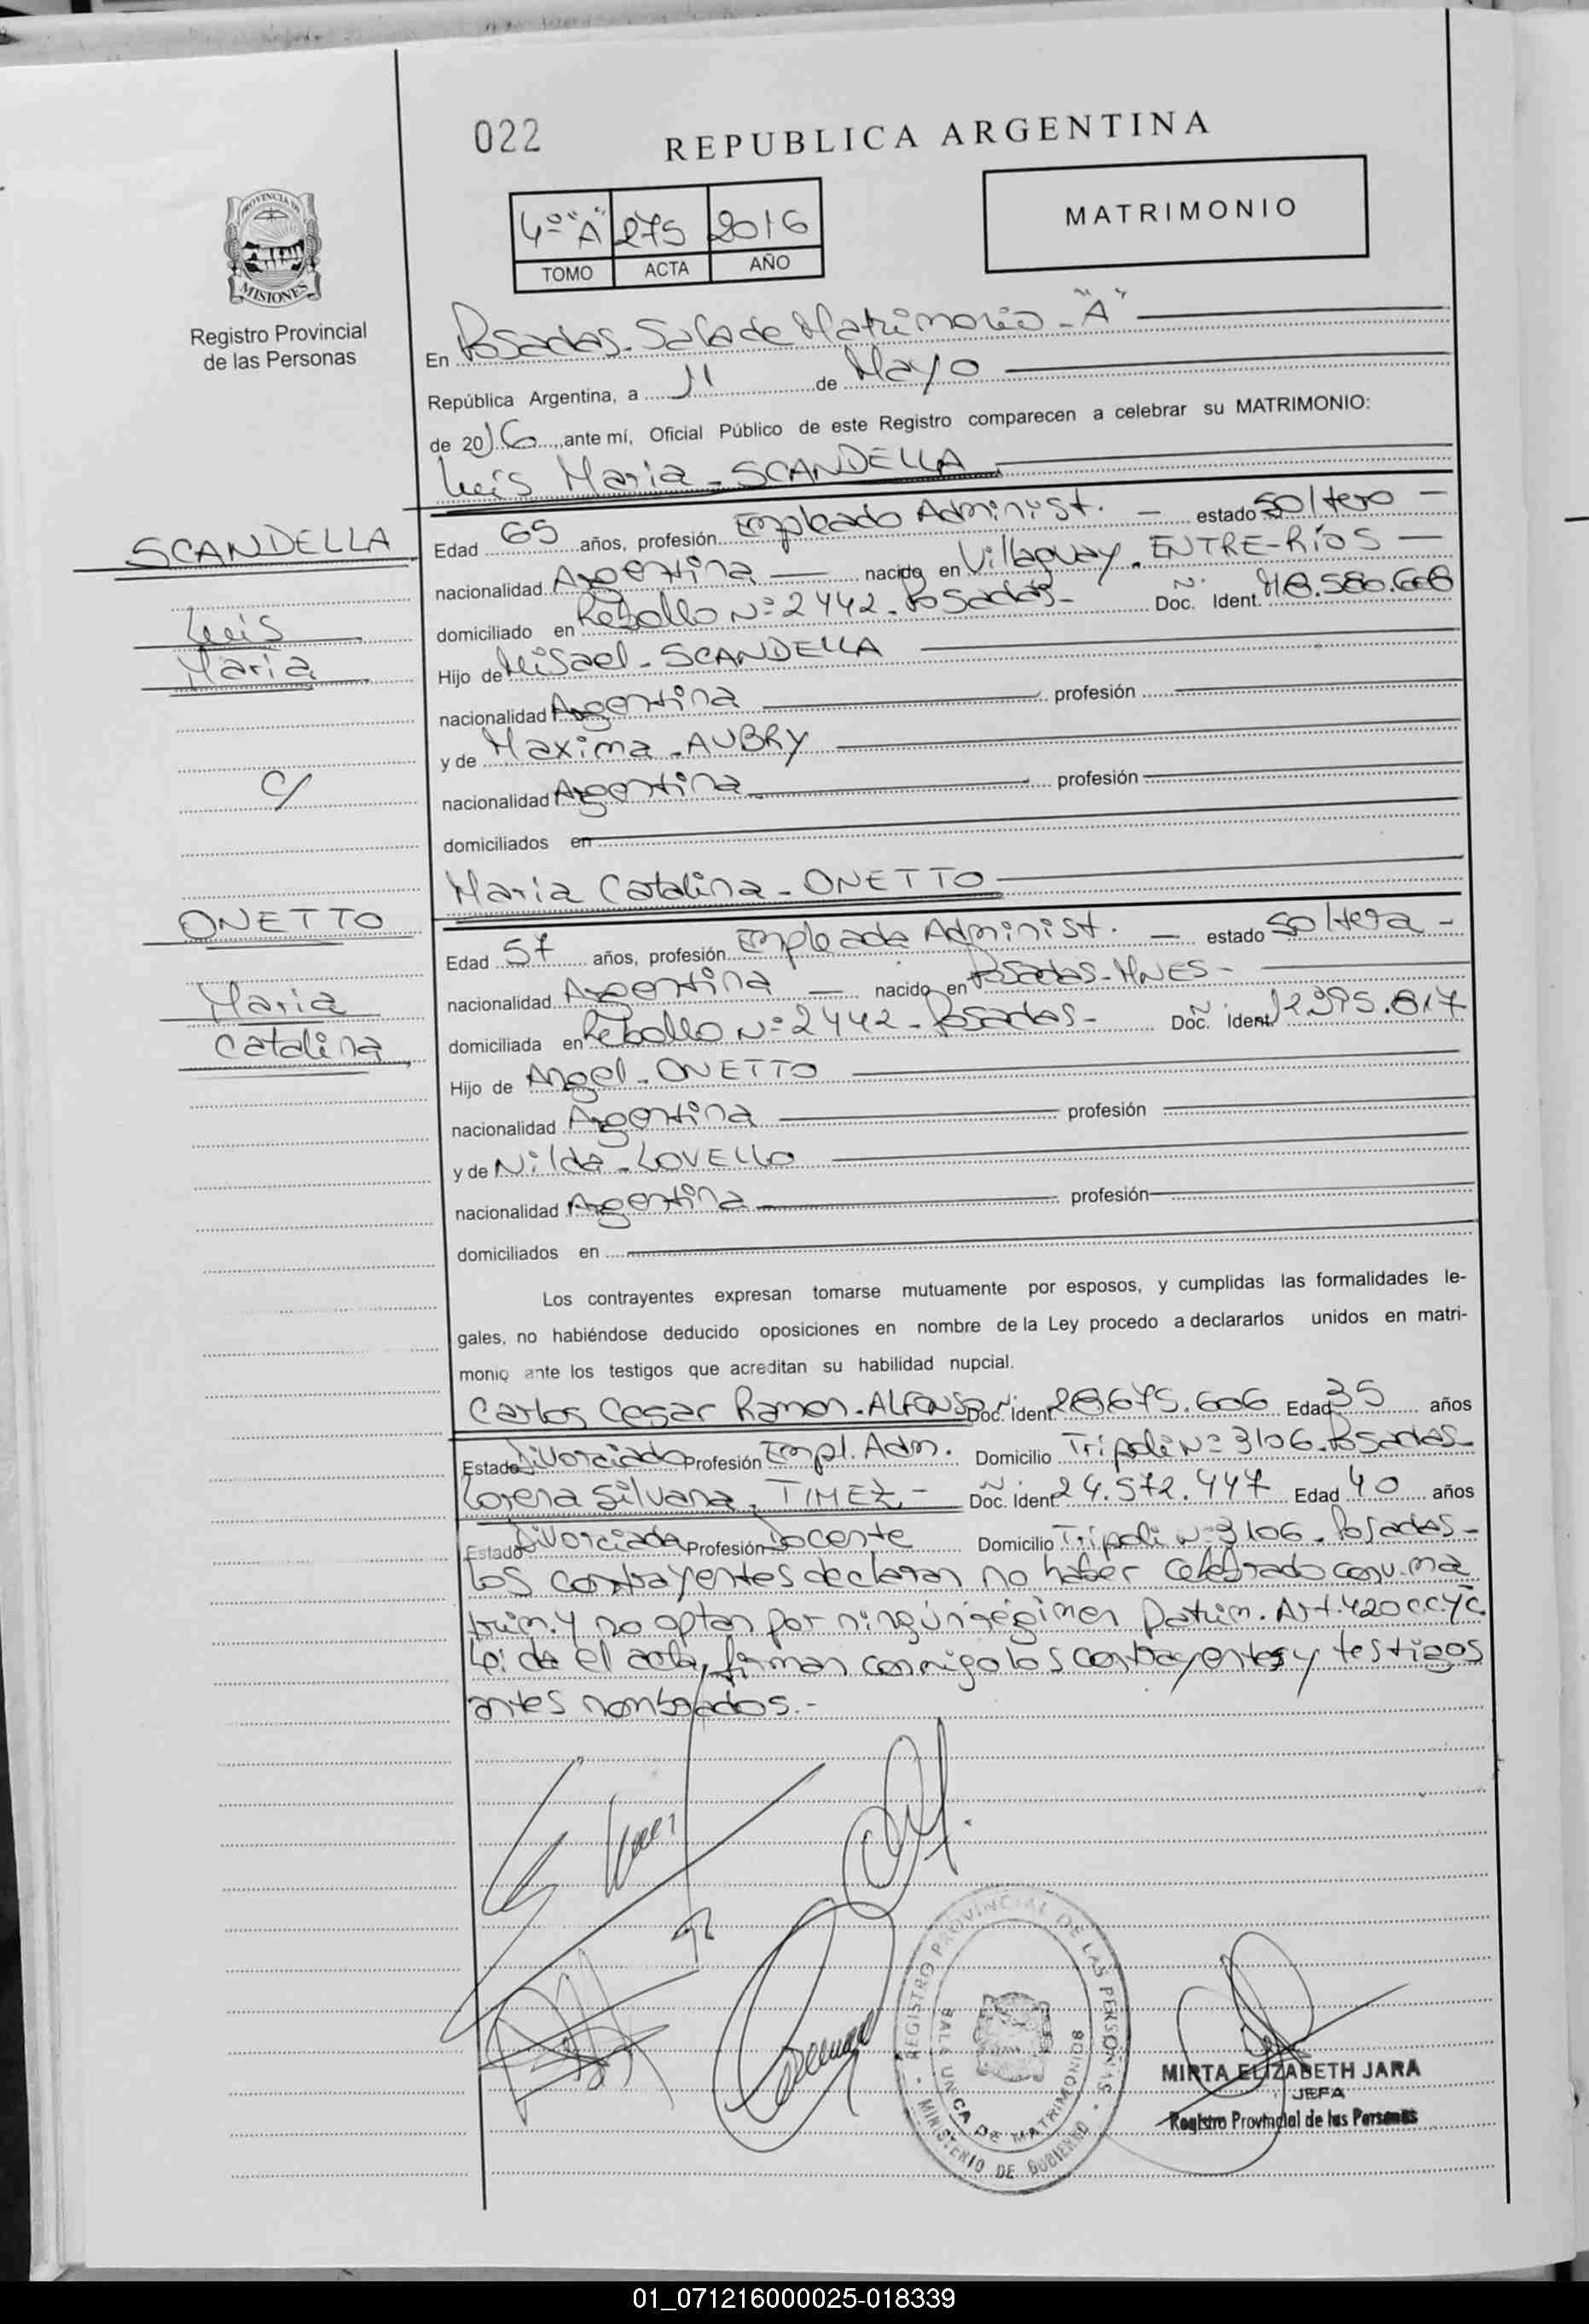 022
REPUBLICA ARGENTINA
PROVINCIA DE
MISIONES
Registro Provincial
de las Personas
4º "A" 275 2016
TOMO ACTA AÑO
MATRIMONIO
En Posadas - Sala de Matrimonio - "A"
República Argentina, a 11 de Mayo
de 2016, ante mí, Oficial Público de este Registro comparecen a celebrar su MATRIMONIO:
Luis Maria - SCANDELLA
SCANDELLA
Luis
Maria
c/
ONETTO
Maria
Catalina
Edad 65 años, profesión Empleado Administ. - estado Soltero -
nacionalidad Argentina - nacido en Villaguay. ENTRE-RÍOS -
domiciliado en Rebollo Nº 2442 - Posadas - Doc. Ident. Nº 8.580.608
Hijo de Misael - SCANDELLA
nacionalidad Argentina profesión
y de Maxima - AUBRY
nacionalidad Argentina profesión
domiciliados en
Maria Catalina - ONETTO
Edad 57 años, profesión Empleada Administ. - estado Soltera -
nacionalidad Argentina - nacido en Posadas - MNES -
domiciliada en Rebollo Nº 2442 - Posadas - Doc. Ident. 12.395.817
Hijo de Angel - ONETTO
nacionalidad Argentina profesión
y de Nilda - LOVELLO
nacionalidad Argentina profesión
domiciliados en
Los contrayentes expresan tomarse mutuamente por esposos, y cumplidas las formalidades le-
gales, no habiéndose deducido oposiciones en nombre de la Ley procedo a declararlos unidos en matri-
monio ante los testigos que acreditan su habilidad nupcial.
Carlos Cesar Ramon - ALFONSO Doc. Ident. 28675.606 Edad 35 años
Estado Divorciado Profesión Empl. Adm. Domicilio Tripoli Nº 3106 - Posadas -
Lorena Silvana - TIMEZ - Doc. Ident. 24.572.447 Edad 40 años
Estado Divorciada Profesión Docente Domicilio Tripoli Nº 3106 - Posadas -
Los contrayentes declaran no haber celebrado conv. ma
trim. y no optan por ningún régimen patrim. Art. 420 CCyC.
Leida el acta, firman conmigo los contrayentes y testigos
antes nombrados.-
REGISTRO PROVINCIAL DE LAS PERSONAS
SALA UNICA DE MATRIMONIOS
MINISTERIO DE GOBIERNO
MIRTA ELIZABETH JARA
JEFA
Registro Provincial de las Personas
01_071216000025-018339